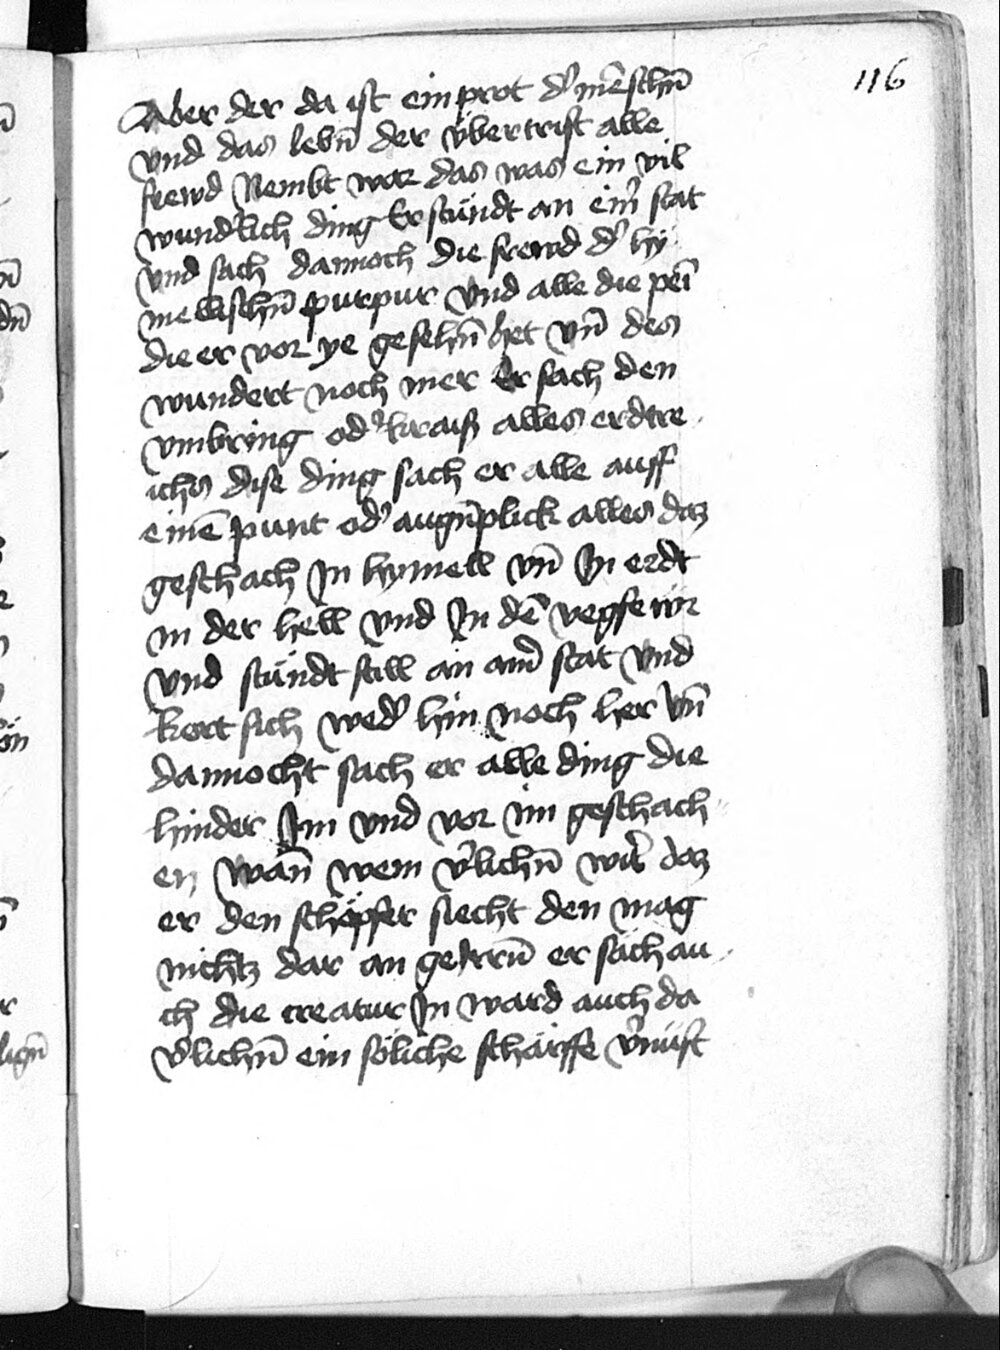 116
Aber der da ist ein prot dˀ mēschn̄
vnd das lebn̄ der v̈bertrift alle
frewd Nembt war das was ein vil
wundˀlich ding Er stündt an einˀ stat
vnd sach dannoch die frewd dˀ hy
mellischn̄ purpur vnd alle die peī
die er vor ye gesehn̄ het vn̄ des
wundert noch mer Er sach den
vmbring odˀ kraiß alles erdtre
ichs dise ding sach er alle auff
einē punt odˀ augn̄plick alles daz
geschach Jn hymell vn̄ Jn erdt
in der hell vnd Jn dē vegfewr
vnd stündt still an ainˀ stat vnd
kert sich wedˀ hin noch her vn̄
dannocht sach er alle ding die
hinder Jm vnd vor im geschach
en wan̄ wem vˀlichn̄ wirt daz
er den schöpfer siecht den mag
nichtz dar an geirrn̄ er sach au
ch die creatur Jn ward auch da
vˀlichn̄ ein söliche schärffe vˀnüft